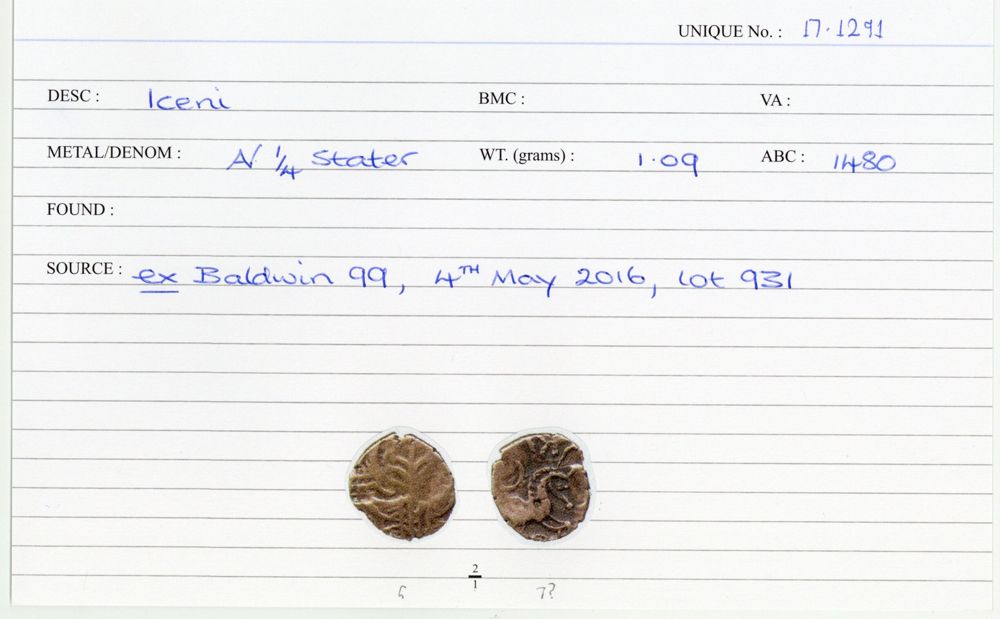 UNIQUE No. : 17.1291
DESC : Iceni BMC : VA :
METAL/DENOM : A/ 1/4 Stater WT. (grams) : 1.09 ABC : 1480
FOUND :
SOURCE : ex Baldwin 99, 4TH May 2016, lot 931
2
1
7?